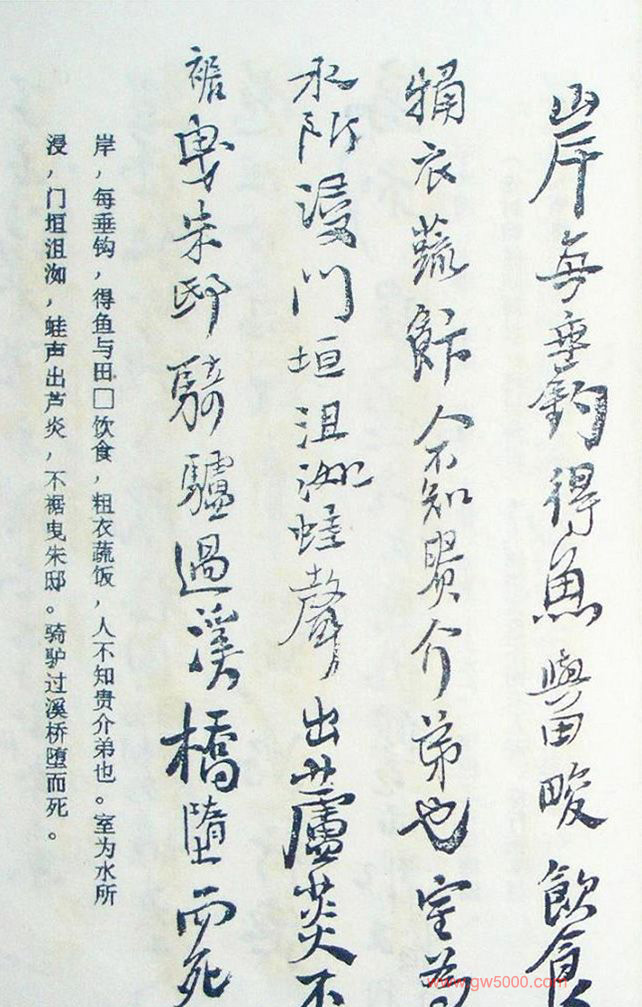 岸每垂釣得魚與田畯飲食
觕衣蔬飰人不知貴介弟也室為
水所浸門垣沮洳蛙聲出蘆菼不
裾曳朱邸騎驢過溪橋墮而死
岸，每垂钩，得鱼与田□饮食，粗衣蔬饭，人不知贵介弟也。室为水所
浸，门垣沮洳，蛙声出芦炎，不裾曳朱邸。骑驴过溪桥堕而死。
www.gw5000.com